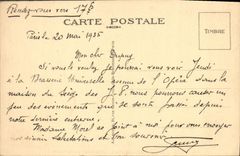 Rendez-vous vers 17h
CARTE POSTALE
TIMBRE
Paris le 20 mai 1935
Mon cher Dupuy
Si vous le voulez je pourrai vous voir Jeudi
à la Brasserie Universelle avenue de l'Opéra dans la
maison du Siège des J.P. nous pourrons causer un
peu des événements qui se sont passés depuis
notre dernière entrevue.
Madame Morel se joint à moi pour vous envoyer
nos sincères Salutations et bon souvenir